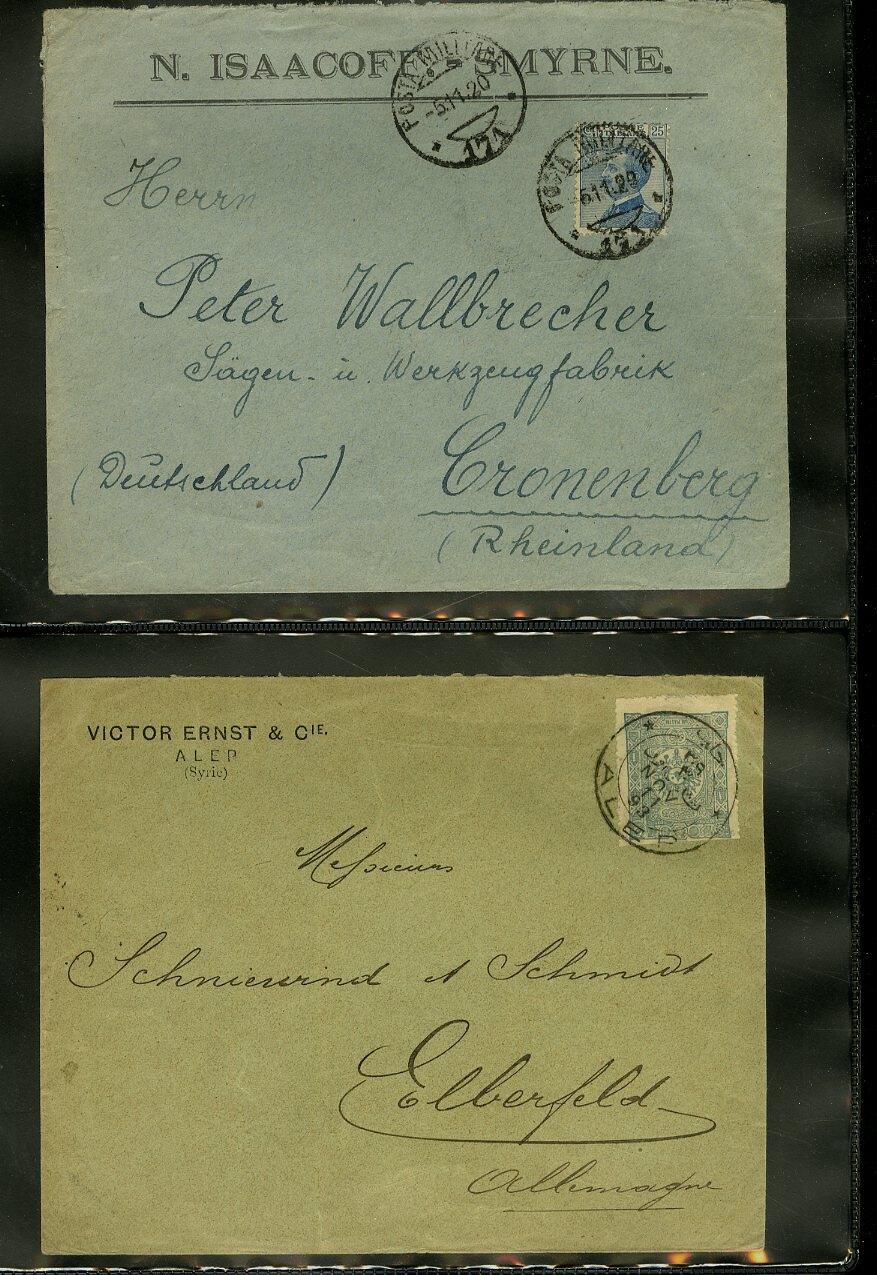 N. ISAACOFF SMYRNE.
POSTA MILITARE
-5.11.20
171
25
POSTA MILITARE
171
Herrn
Peter Wallbrecher
Sägen- u. Werkzeugfabrik
(Deutschland) Cronenberg
(Rheinland)
VICTOR ERNST & CIE.
ALEP
(Syrie)
ALEP
Messieurs
Schniewind et Schmidt
Elberfeld
Allemagne